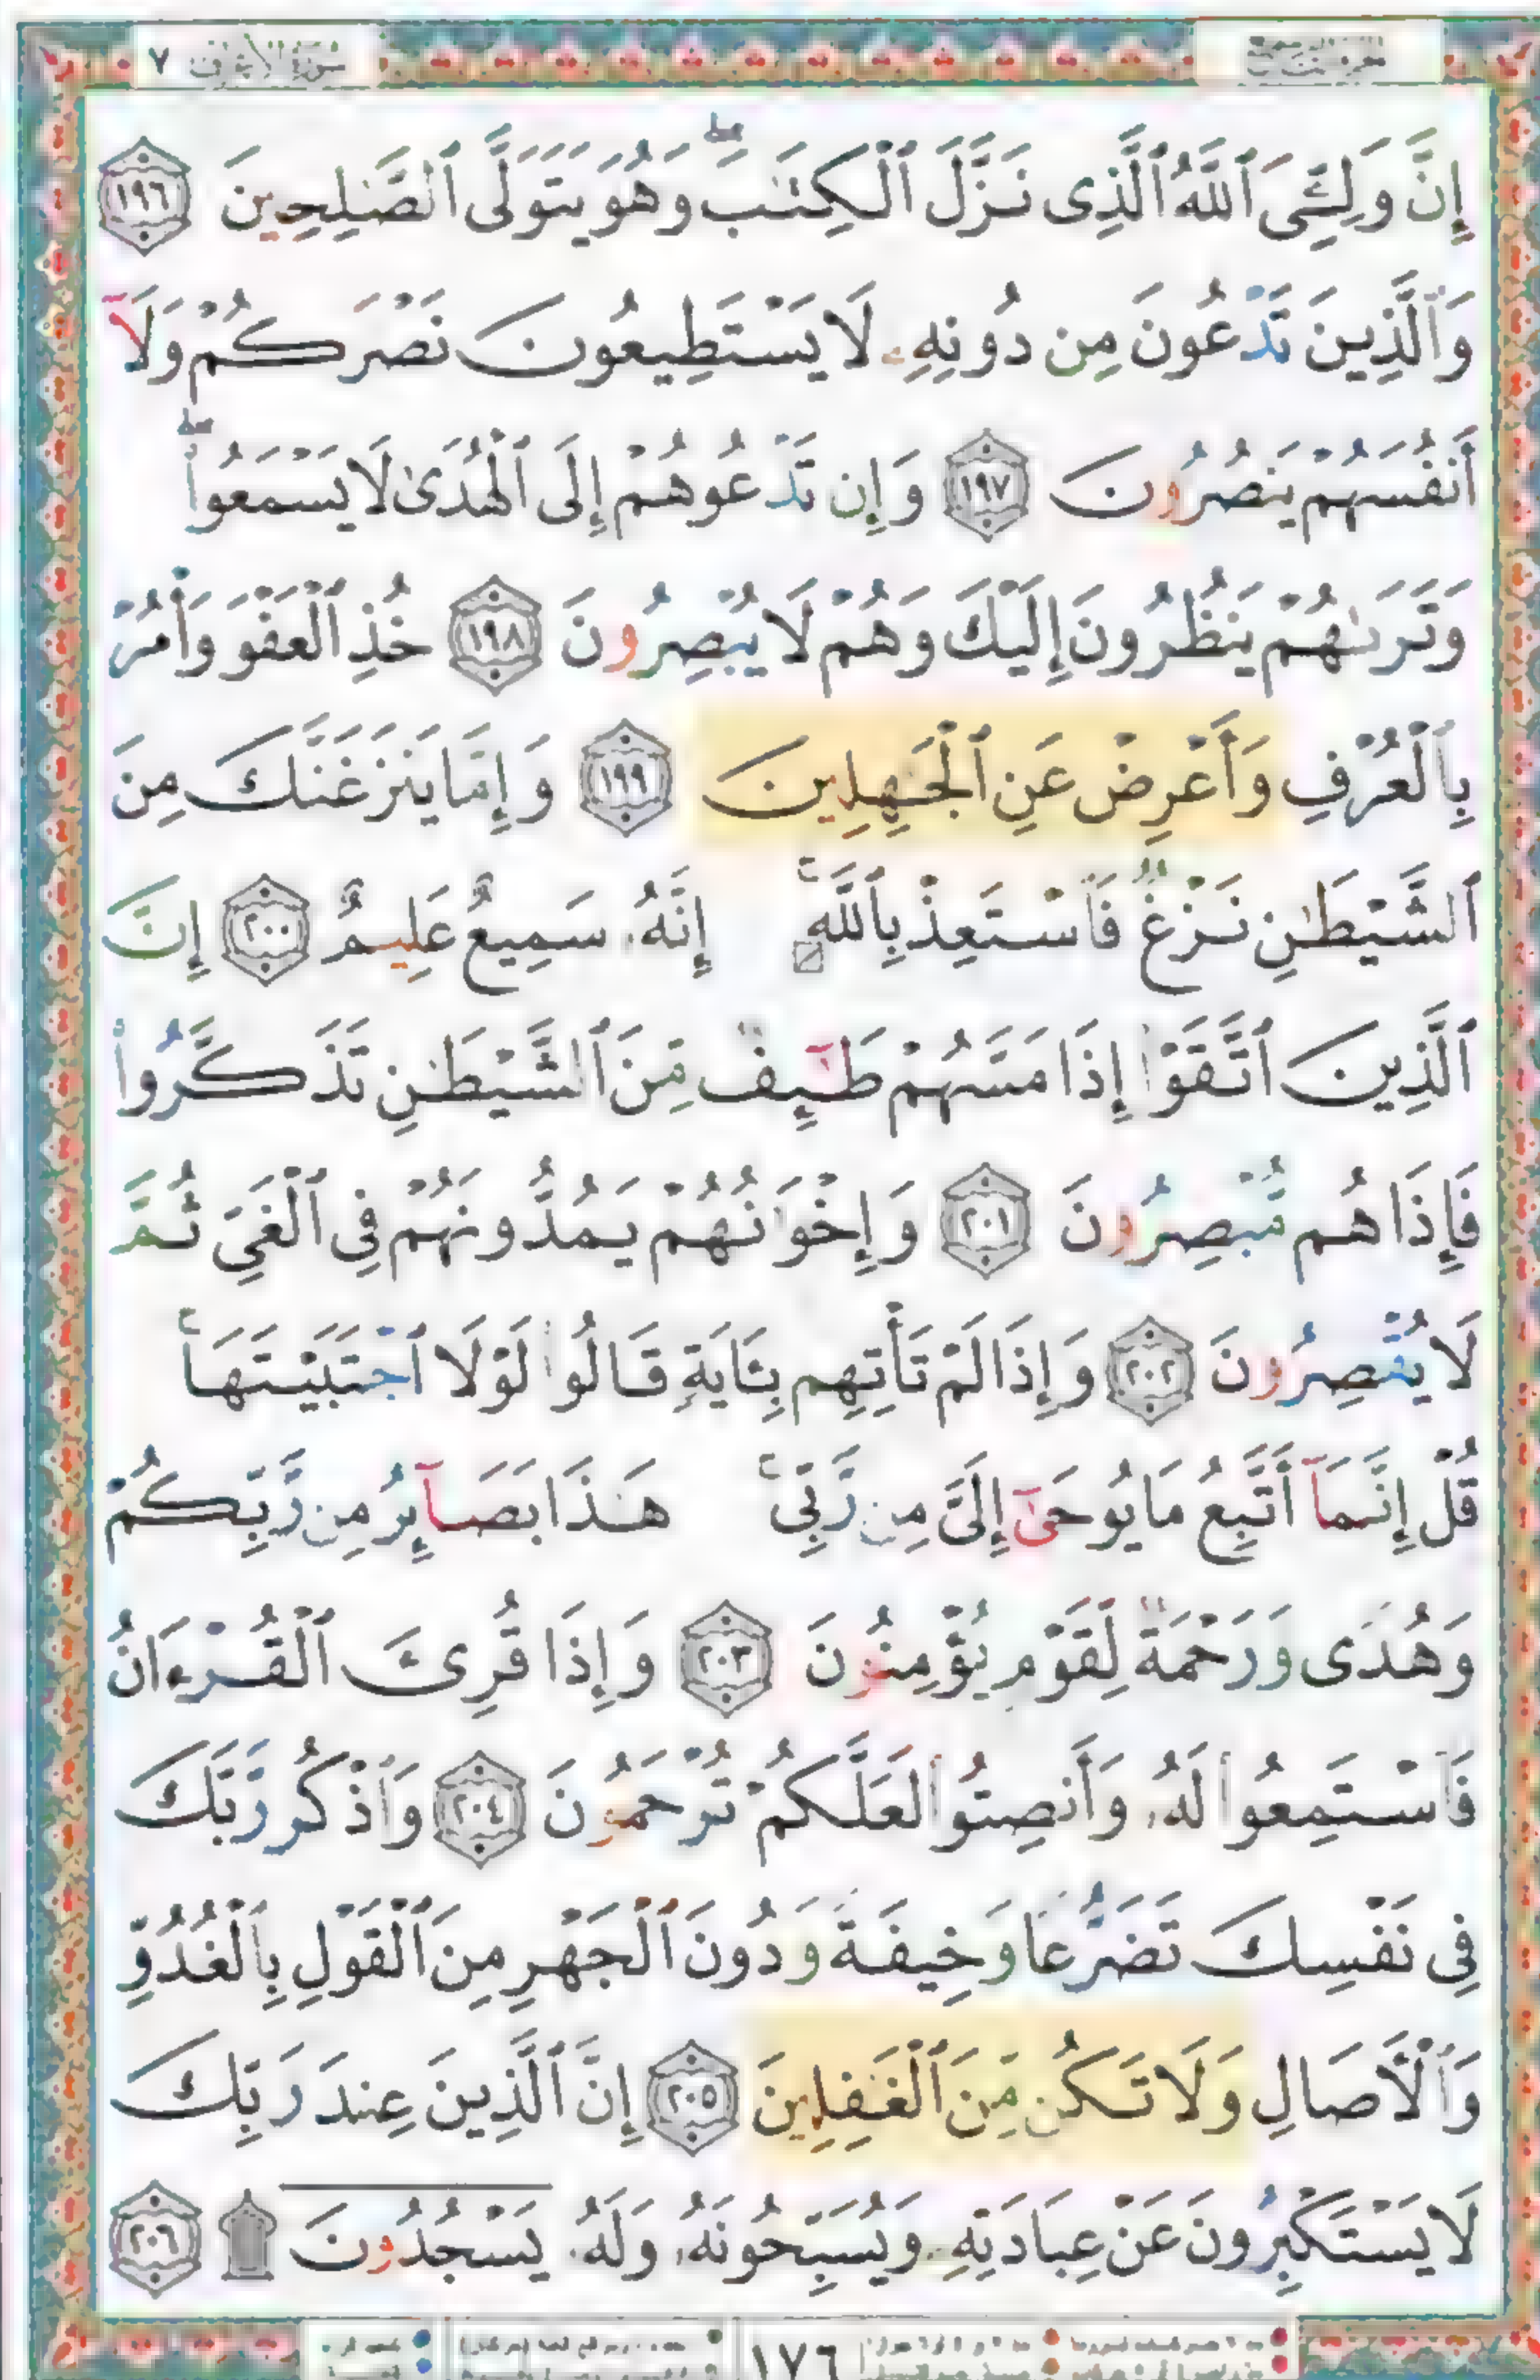 سورة الأعراف ٧
إِنَّ وَلِـِّۧىَ ٱللَّهُ ٱلَّذِى نَزَّلَ ٱلْكِتَـٰبَ ۖ وَهُوَ يَتَوَلَّى ٱلصَّـٰلِحِينَ ١٩٦
وَٱلَّذِينَ تَدْعُونَ مِن دُونِهِۦ لَا يَسْتَطِيعُونَ نَصْرَكُمْ وَلَآ
أَنفُسَهُمْ يَنصُرُونَ ١٩٧ وَإِن تَدْعُوهُمْ إِلَى ٱلْهُدَىٰ لَا يَسْمَعُوا۟ ۖ
وَتَرَىٰهُمْ يَنظُرُونَ إِلَيْكَ وَهُمْ لَا يُبْصِرُونَ ١٩٨ خُذِ ٱلْعَفْوَ وَأْمُرْ
بِٱلْعُرْفِ وَأَعْرِضْ عَنِ ٱلْجَـٰهِلِينَ ١٩٩ وَإِمَّا يَنزَغَنَّكَ مِنَ
ٱلشَّيْطَـٰنِ نَزْغٌ فَٱسْتَعِذْ بِٱللَّهِ ۚ إِنَّهُۥ سَمِيعٌ عَلِيمٌ ٢٠٠ إِنَّ
ٱلَّذِينَ ٱتَّقَوْا۟ إِذَا مَسَّهُمْ طَـٰٓئِفٌ مِّنَ ٱلشَّيْطَـٰنِ تَذَكَّرُوا۟
فَإِذَا هُم مُّبْصِرُونَ ٢٠١ وَإِخْوَٰنُهُمْ يَمُدُّونَهُمْ فِى ٱلْغَىِّ ثُمَّ
لَا يُقْصِرُونَ ٢٠٢ وَإِذَا لَمْ تَأْتِهِم بِـَٔايَةٍ قَالُوا۟ لَوْلَا ٱجْتَبَيْتَهَا ۚ
قُلْ إِنَّمَآ أَتَّبِعُ مَا يُوحَىٰٓ إِلَىَّ مِن رَّبِّى ۚ هَـٰذَا بَصَآئِرُ مِن رَّبِّكُمْ
وَهُدًى وَرَحْمَةٌ لِّقَوْمٍ يُؤْمِنُونَ ٢٠٣ وَإِذَا قُرِئَ ٱلْقُرْءَانُ
فَٱسْتَمِعُوا۟ لَهُۥ وَأَنصِتُوا۟ لَعَلَّكُمْ تُرْحَمُونَ ٢٠٤ وَٱذْكُر رَّبَّكَ
فِى نَفْسِكَ تَضَرُّعًا وَخِيفَةً وَدُونَ ٱلْجَهْرِ مِنَ ٱلْقَوْلِ بِٱلْغُدُوِّ
وَٱلْـَٔاصَالِ وَلَا تَكُن مِّنَ ٱلْغَـٰفِلِينَ ٢٠٥ إِنَّ ٱلَّذِينَ عِندَ رَبِّكَ
لَا يَسْتَكْبِرُونَ عَنْ عِبَادَتِهِۦ وَيُسَبِّحُونَهُۥ وَلَهُۥ يَسْجُدُونَ ۩ ٢٠٦
١٧٦